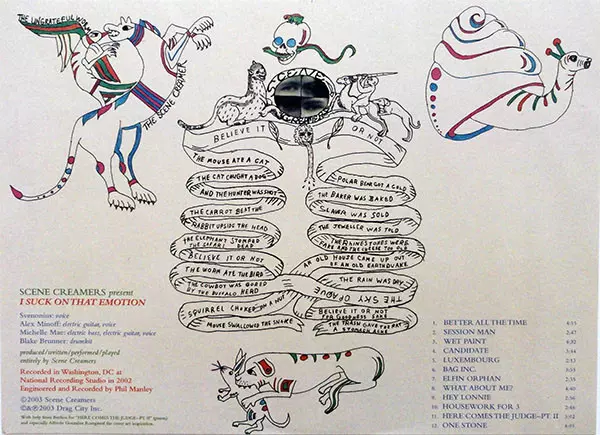 THE UNGRATEFUL WORM
THE SCENE CREAMER
SCENE
CREAMERS
BELIEVE IT OR NOT
THE MOUSE ATE A CAT
THE CAT CAUGHT A DOG
AND THE HUNTER WAS SHOT
THE CARROT BEAT THE
RABBIT UPSIDE THE HEAD
THE ELEPHANT STOMPED
THE SAFARI DEAD
BELIEVE IT OR NOT
THE WORM ATE THE BIRD
THE COWBOY WAS GORED
BY THE BUFFALO HERD
SQUIRREL CHOKED ON A NUT
MOUSE SWALLOWED THE SNAKE
POLAR BEAR GOT A COLD
THE BAKER WAS BAKED
SLAVER WAS SOLD
THE JEWELLER WAS TOLD
THE RHINESTONES WERE
FAKE AND THE CHEESE TOO OLD
AN OLD HOUSE CAME UP OUT
OF AN OLD EARTHQUAKE
THE RAIN WAS DRY
THE SKY
BELIEVE IT OR NOT
FOR GOODNESS SAKE
THE TRASH GAVE THE RAT
A STOMACH ACHE
SCENE CREAMERS present
I SUCK ON THAT EMOTION
Svenonius: voice
Alex Minoff: electric guitar, voice
Michelle Mae: electric bass, electric guitar, voice
Blake Brunner: drumkit
produced/written/performed/played
entirely by Scene Creamers
Recorded in Washington, DC at
National Recording Studio in 2002
Engineered and Recorded by Phil Manley
©2003 Scene Creamers
©&℗2003 Drag City Inc.
1. BETTER ALL THE TIME
2. SESSION MAN 2:47
3. WET PAINT
4. CANDIDATE
5. LUXEMBOURG
6. BAG INC.
7. ELFIN ORPHAN
8. WHAT ABOUT ME?
9. HEY LONNIE
10. HOUSEWORK FOR 3
11. HERE COMES THE JUDGE–PT II
12. ONE STONE